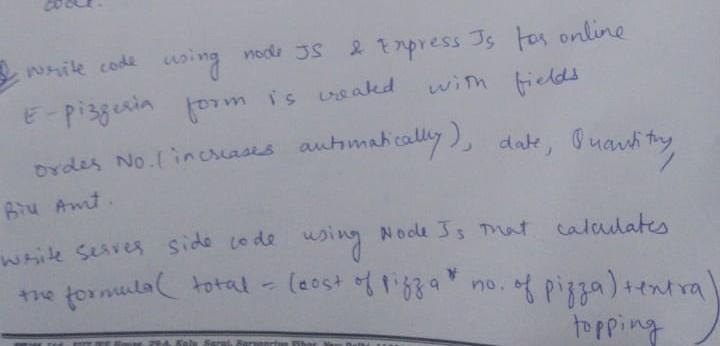 code.
Q Write code using node JS & Express Js for online
E-pizzeria form is created with fields
Order No. (increases automatically), date, Quantity,
Bill Amt.
Write server side code using Node Js that calculates
the formula ( total = (cost of pizza * no. of pizza) + extra
topping )
House, 29-A, Kalu Sarai, Sarvapriya Vihar, New Delhi